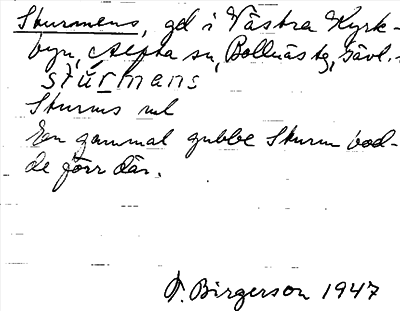 Skurmens, gd i Västra Kyrk-
byn, Alfta sn, Bollnäs tg, Gävl.
stúrmans
Skurms
En gammal gubbe Skurm bod-
de förr där.
F. Birgerson 1947